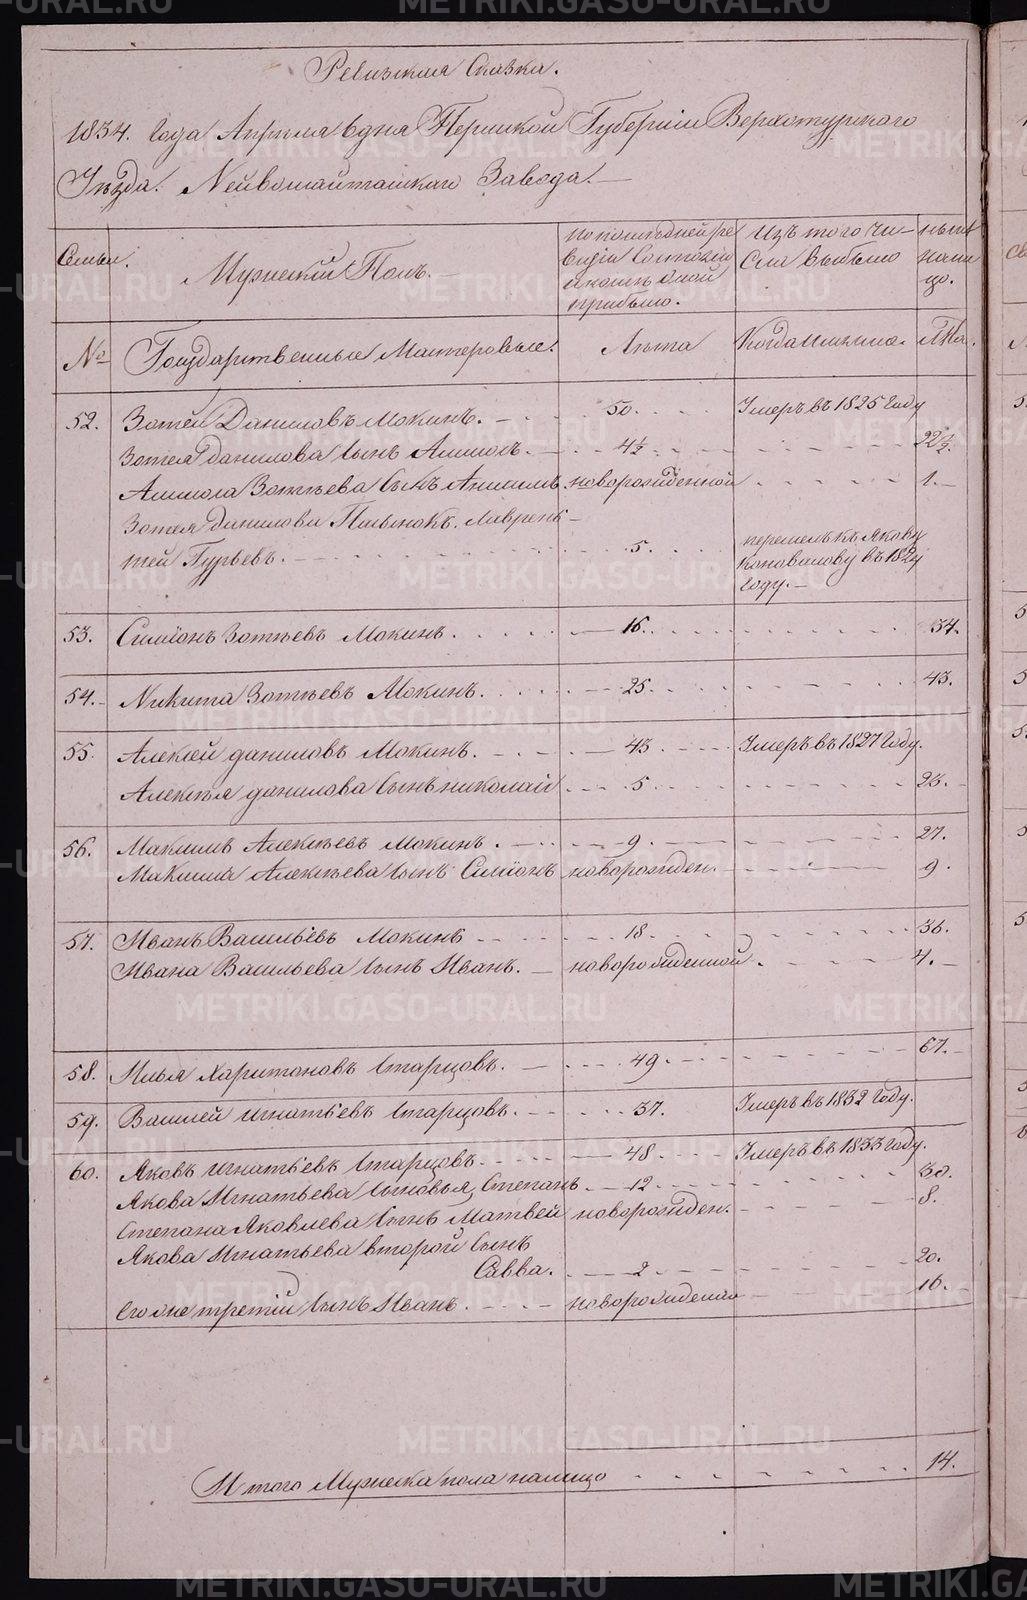 Ревизская Сказка.
1834. Года Апреля дня Пермской Губернии Верхотурского
Уезда. Нейвошайтанскаго Завода.
Семьи.
Мужеский Полъ.
по последней ре
визіи Состояло
и после оной
прибыло.
Изъ того чи-
сла выбыло
ныне
нали
цо.
№
Государственные Мастеровые.
Лета
Когда именно.
Лета.
52. Зотей Даниловъ Мокинъ. 50. Умеръ въ 1825 Году
Зотея данилова сынъ 4½. 22½.
Зотеева сынъ новорожденной 1.
Зотея данилова Пасынокъ. Лаврен-
тей Гурьевъ. 5. перешелъ къ Якову
Коновалову въ 1824
Году.
53. Симіонъ Зотеевъ Мокинъ. 16. 34.
54. Никита Зотеевъ Мокинъ. 25. 43.
55. Алексей даниловъ Мокинъ. 43. Умеръ въ 1827 Году.
Алексея данилова Сынъ николай 5 23.
56. Максимъ Алексеевъ Мокинъ. 9. 27.
Максима Алексеева сынъ Симіонъ новорожден. 9.
57. Иванъ Васильевъ Мокинъ 18. 36.
Ивана Васильева сынъ Иванъ. новорожденной. 4.
58. Илья Харитоновъ Старцовъ. 49. 67.
59. Василей игнатьевъ Старцовъ. 37. Умеръ въ 1832 Году.
60. Яковъ игнатьевъ Старцовъ. 48. Умеръ въ 1833 году.
Якова Игнатьева сыновья, Степанъ 12. 30.
Степана Яковлева Сынъ Матвей новорожден. 8.
Якова Игнатьева второй Сынъ
Савва. 2 20.
Его же третій сынъ Иванъ. новорожденой 16.
Итого Мужеска пола налицо 14.
METRIKI.GASO-URAL.RU